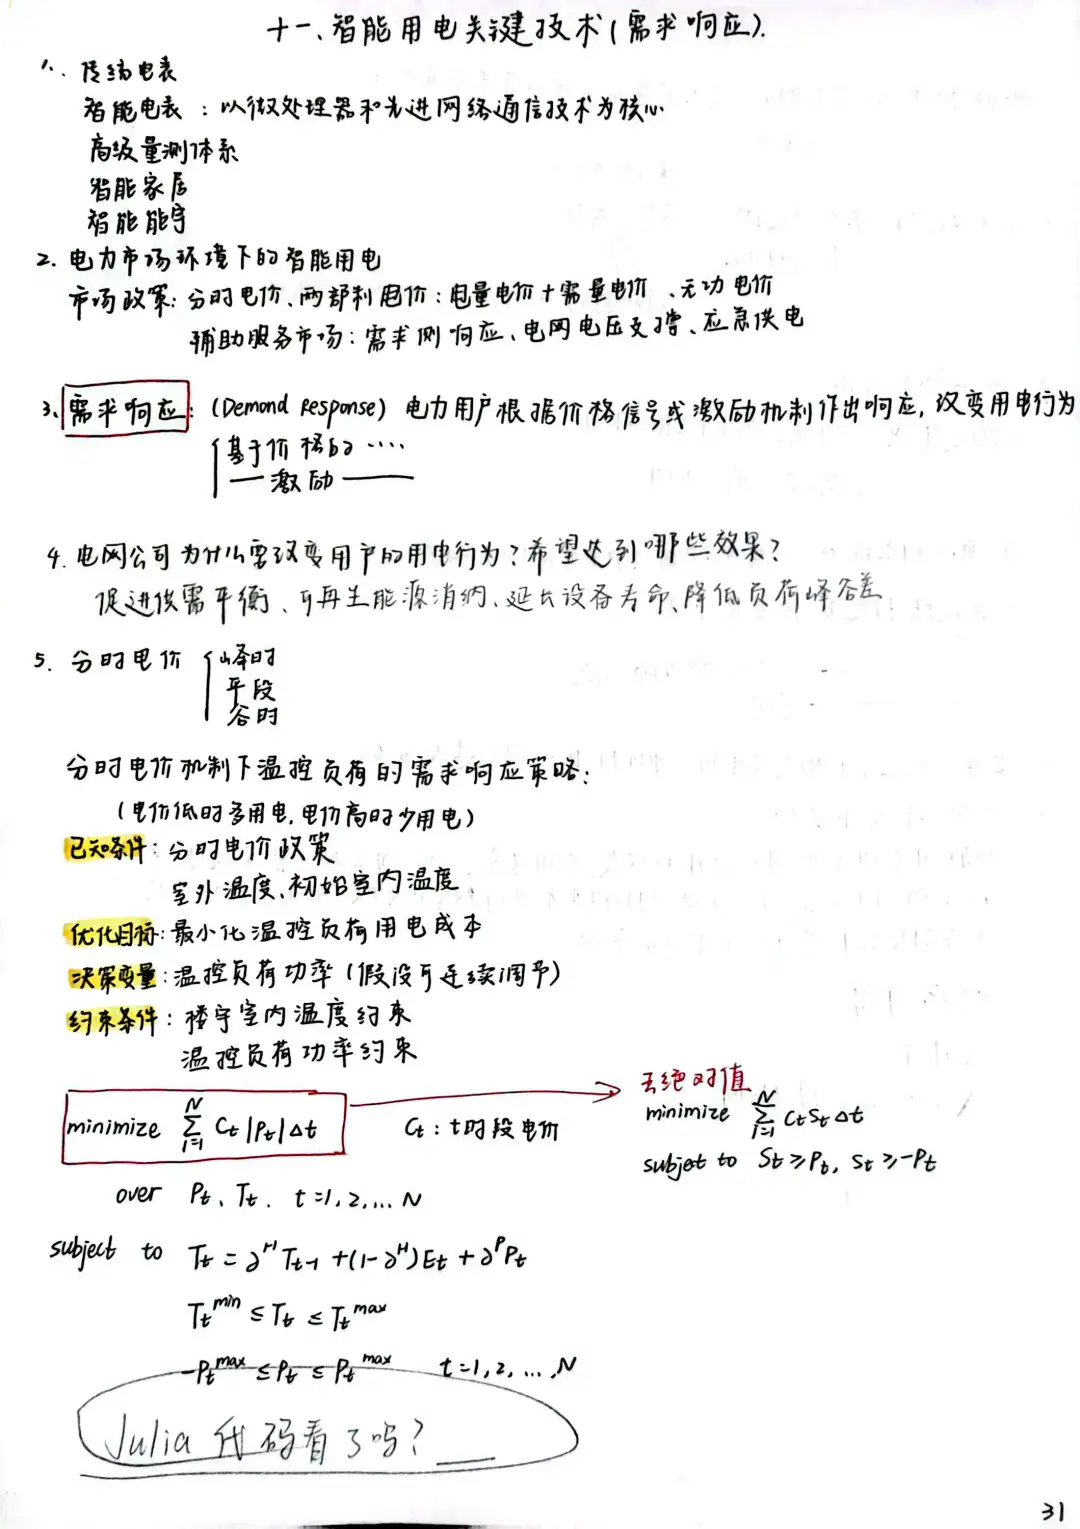 十一、智能用电关键技术(需求响应).
1. 传统电表
智能电表：以微处理器和先进网络通信技术为核心
高级量测体系
智能家居
智能能宇
2. 电力市场环境下的智能用电
市场政策：分时电价、两部制电价：电量电价+需量电价、无功电价
辅助服务市场：需求侧响应、电网电压支撑、应急供电
3、需求响应：(Demand Response) 电力用户根据价格信号或激励机制作出响应,改变用电行为
基于价格的....
— 激励 ——
4. 电网公司为什么要改变用户的用电行为？希望达到哪些效果？
促进供需平衡、可再生能源消纳、延长设备寿命、降低负荷峰谷差
5. 分时电价 { 峰时
平段
谷时
分时电价机制下温控负荷的需求响应策略：
(电价低时多用电,电价高时少用电)
已知条件：分时电价政策
室外温度、初始室内温度
优化目标：最小化温控负荷用电成本
决策变量：温控负荷功率(假设可连续调节)
约束条件：楼宇室内温度约束
温控负荷功率约束
minimize ∑_{i=1}^{N} Ct|Pt|Δt
Ct：t时段电价
去绝对值
minimize ∑_{i=1}^{N} CtStΔt
subject to St≥Pt, St≥-Pt
over Pt、Tt. t=1,2,...N
subject to Tt = ∂^H Tt-1 +(1-∂^H)Et + ∂^P Pt
Tt^min ≤ Tt ≤ Tt^max
-Pt^max ≤ Pt ≤ Pt^max t=1,2,...,N
Julia 代码看了吗？
31